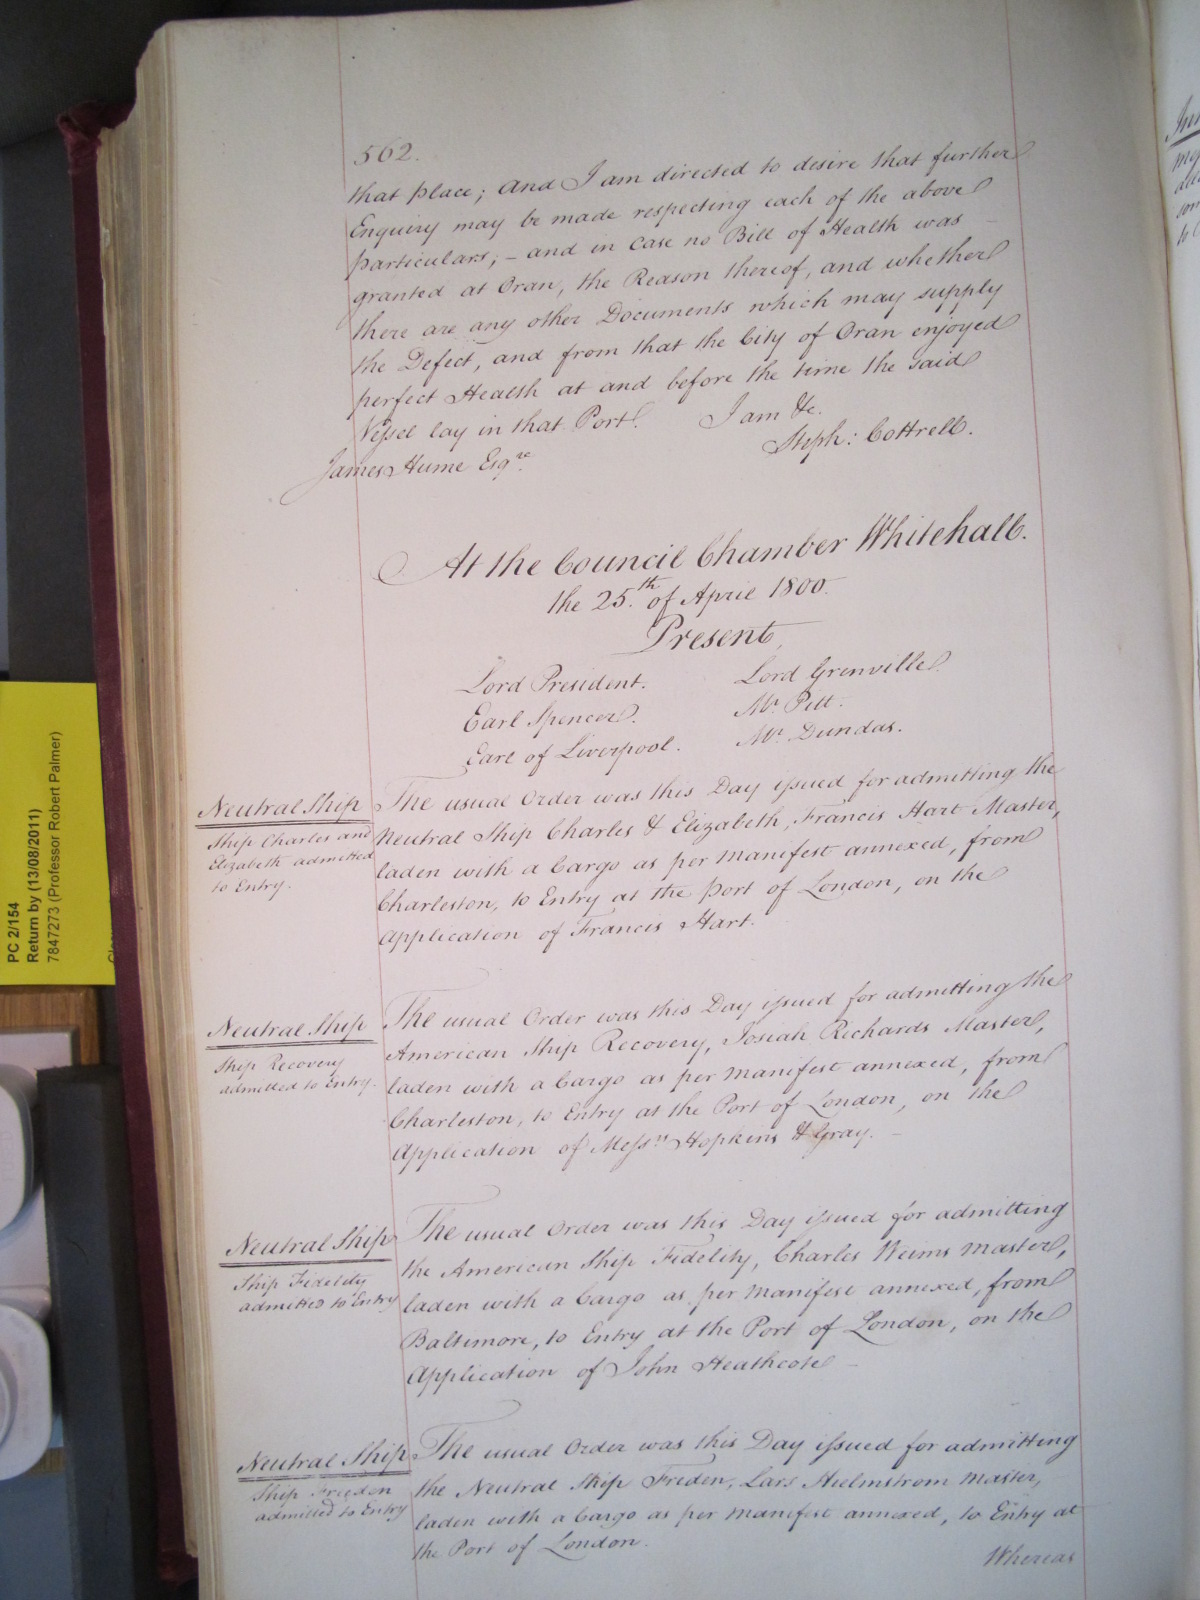 562.
that place; and I am directed to desire that further
Enquiry may be made respecting each of the above
particulars; – and in case no Bill of Health was –
granted at Oran, the Reason thereof, and whether
there are any other Documents which may supply
the Defect, and from that the City of Oran enjoyed
perfect Health at and before the time the said
Vessel lay in that Port. I am &c.
Steph: Cottrell.
James Hume Esqre.
At the Council Chamber Whitehall.
the 25th. of April 1800.
Present
Lord President. Lord Grenville
Earl Spencer. Mr. Pitt.
Earl of Liverpool. Mr. Dundas.
Neutral Ship
Ship Charles and
Elizabeth admitted
to Entry.
The usual Order was this Day issued for admitting the
Neutral Ship Charles & Elizabeth, Francis Hart Master,
laden with a Cargo as per Manifest annexed, from
Charleston, to Entry at the Port of London, on the
Application of Francis Hart.
Neutral Ship
Ship Recovery
admitted to Entry.
The usual Order was this Day issued for admitting the
American Ship Recovery, Josiah Richards Master,
laden with a Cargo as per Manifest annexed, from
Charleston, to Entry at the Port of London, on the
Application of Messrs Hopkins & Gray. –
Neutral Ship
Ship Fidelity
admitted to Entry
The usual Order was this Day issued for admitting
the American Ship Fidelity, Charles Weims Master,
laden with a Cargo as per Manifest annexed, from
Baltimore, to Entry at the Port of London, on the
Application of John Heathcote –
Neutral Ship
Ship Frieden
admitted to Entry
The usual Order was this Day issued for admitting
the Neutral Ship Freden, Lars Hielmstrom Master,
laden with a Cargo as per Manifest annexed, to Entry at
the Port of London.
Whereas
PC 2/154
Return by (13/08/2011)
7847273 (Professor Robert Palmer)